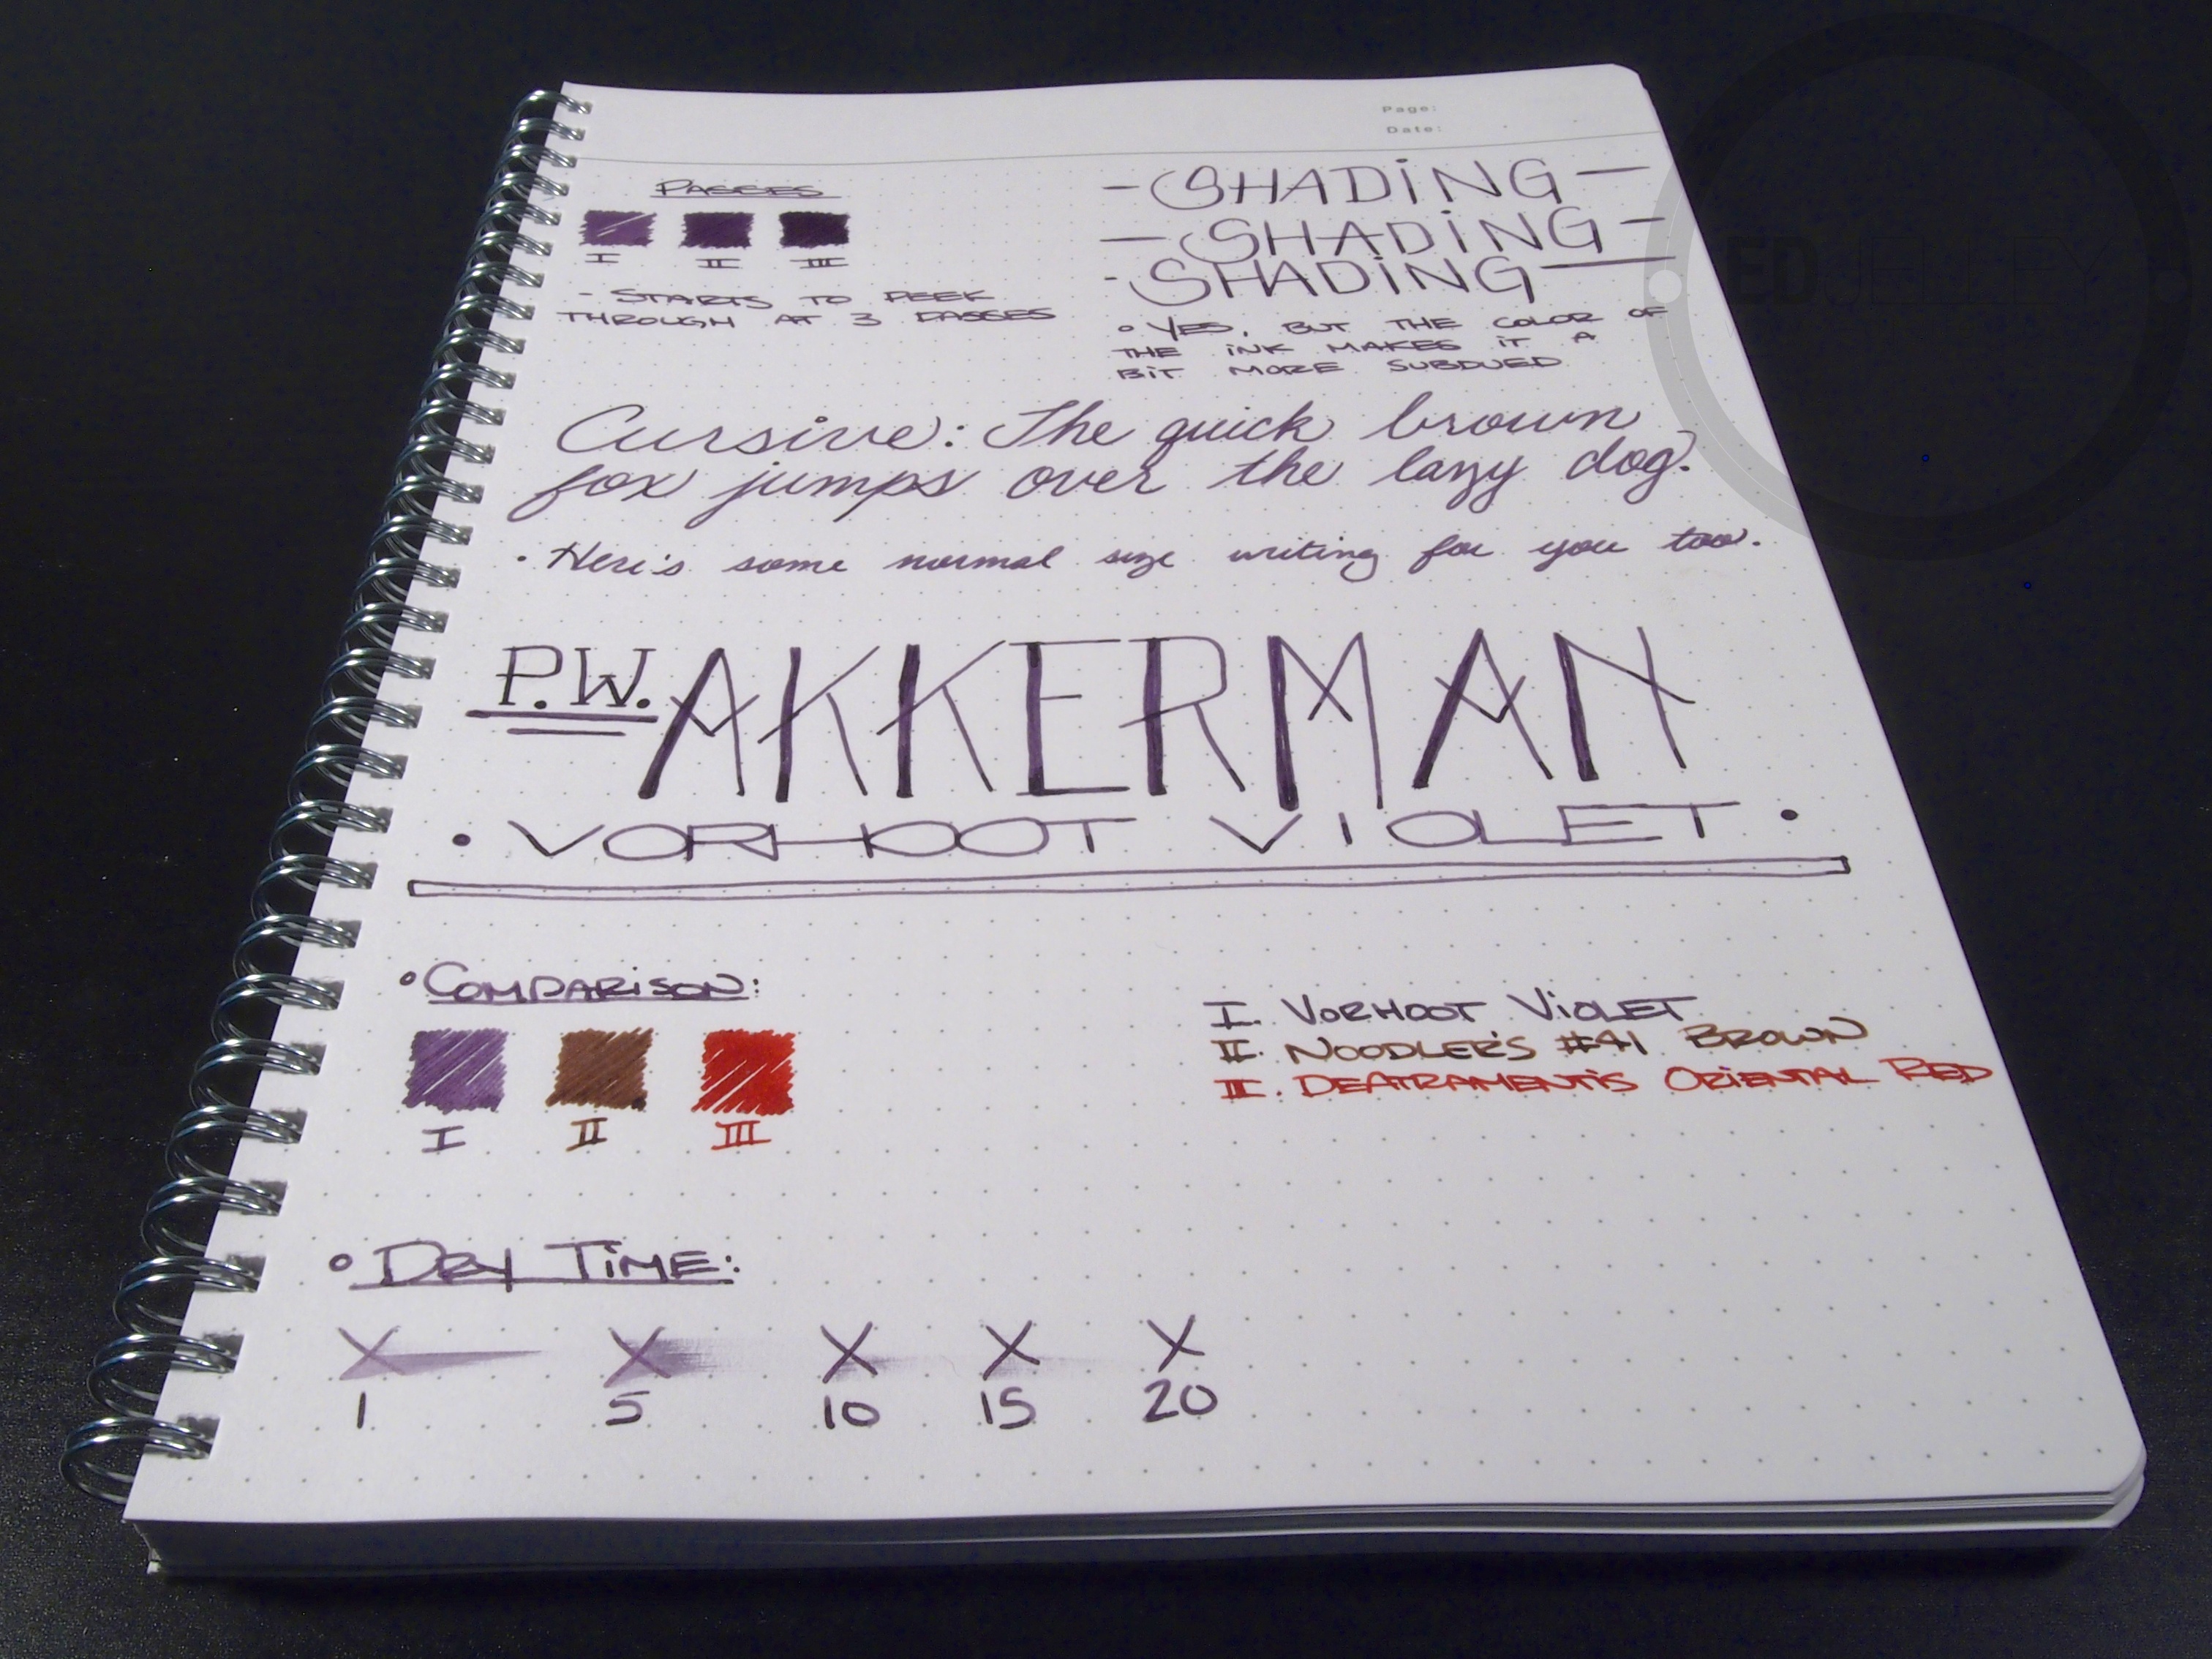 Page:
Date:
PASSES
I II III
- STARTS TO PEEK
THROUGH AT 3 PASSES
- SHADING -
- SHADING -
- SHADING -
° YES, BUT THE COLOR OF
THE INK MAKES IT A
BIT MORE SUBDUED
Cursive: The quick brown
fox jumps over the lazy dog.
• Here's some normal size writing for you too.
P.W. AKKERMAN
• VORHOOT VIOLET •
° COMPARISON:
I II III
I. VORHOOT VIOLET
II. NOODLER'S #41 BROWN
III. DEATRAMENTIS ORIENTAL RED
° DRY TIME:
X X X X X
1 5 10 15 20
ED JELLEY